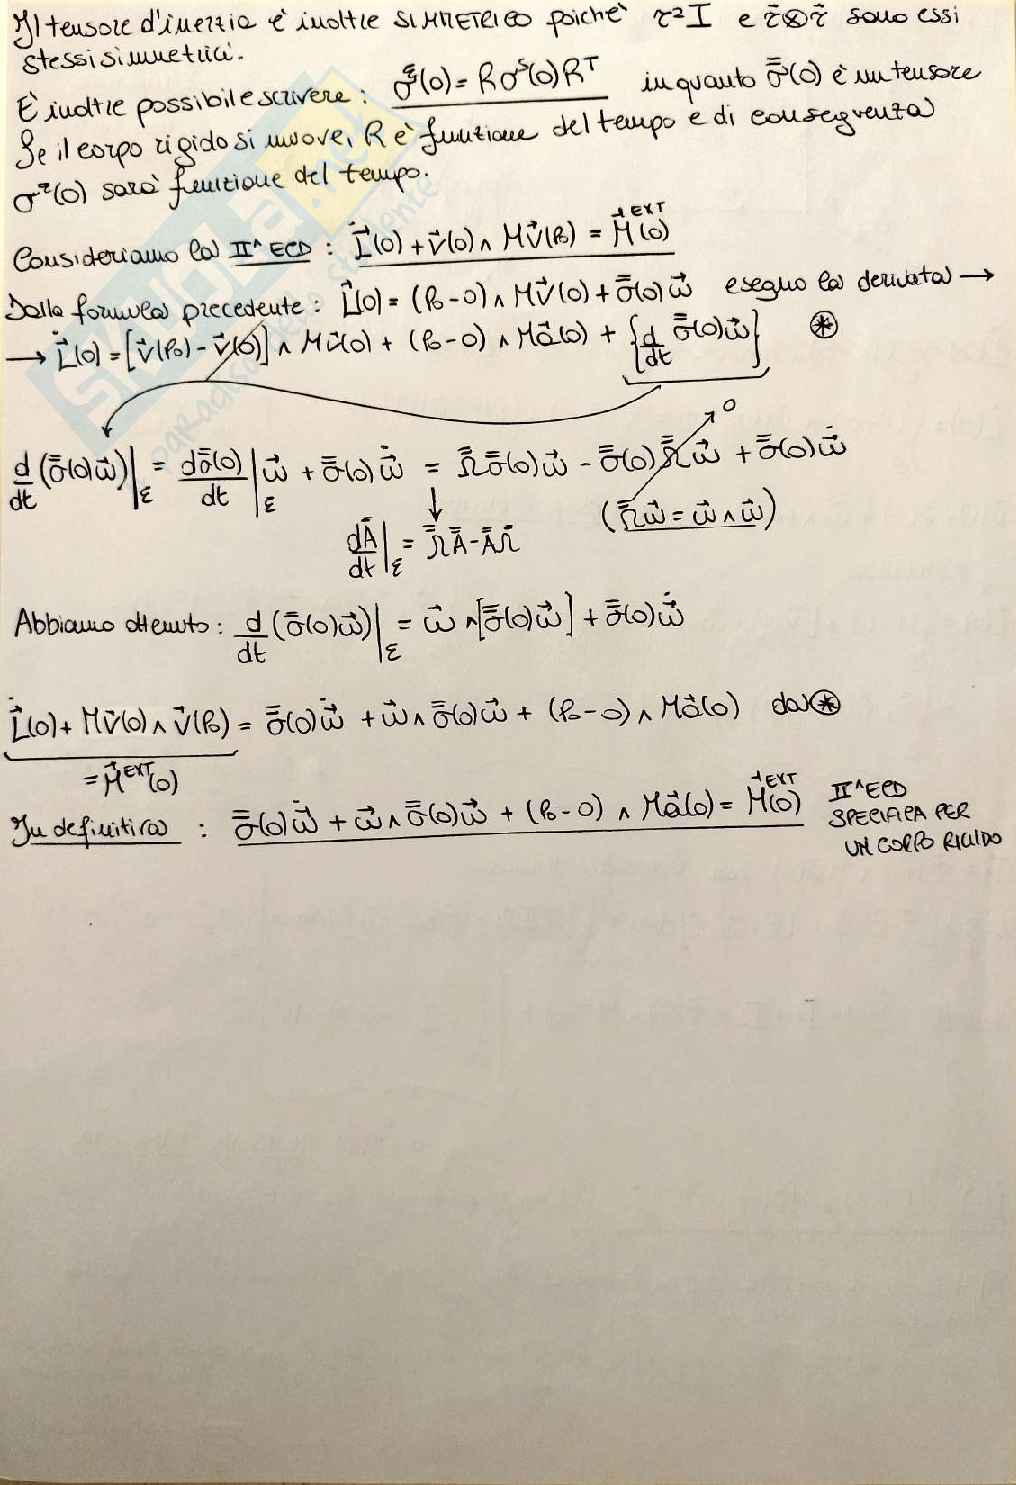 Il tensore d'inerzia è inoltre SIMMETRICO poichè r²I e r̄⊗r̄ sono essi
stessi simmetrici.
È inoltre possibile scrivere: σ^ε(O) = Rσ^S(O)R^T in quanto σ̿(O) è un tensore
Se il corpo rigido si muove, R è funzione del tempo e di conseguenza
σ^ε(O) sarà funzione del tempo.
Consideriamo la II^ ECD: L⃗̇(O) + v⃗(O) ∧ Mv⃗(P₀) = M⃗^EXT(O)
Dalla formula precedente: L⃗(O) = (P₀-O) ∧ Mv⃗(O) + σ̿(O)ω⃗ eseguo la derivata →
→ L⃗̇(O) = [v⃗(P₀) - v⃗(O)] ∧ Mv⃗(O) + (P₀-O) ∧ Ma⃗(O) + {d/dt σ̿(O)ω⃗} ⊛
0
d/dt (σ̿(O)ω⃗)|ε = dσ̿(O)/dt|ε ω⃗ + σ̿(O)ω⃗̇ = Ω̿σ̿(O)ω⃗ - σ̿(O)Ω̿ω⃗ + σ̿(O)ω⃗̇
(Ω̿ω⃗ = ω⃗∧ω⃗)
dĀ/dt|ε = Ω̿Ā - ĀΩ̿
Abbiamo ottenuto: d/dt (σ̿(O)ω⃗)|ε = ω⃗ ∧ [σ̿(O)ω⃗] + σ̿(O)ω⃗̇
L⃗̇(O) + Mv⃗(O) ∧ v⃗(P₀) = σ̿(O)ω⃗̇ + ω⃗ ∧ σ̿(O)ω⃗ + (P₀-O) ∧ Ma⃗(O) da ⊛
= M⃗^EXT(O)
In definitiva: σ̿(O)ω⃗̇ + ω⃗ ∧ σ̿(O)ω⃗ + (P₀-O) ∧ Ma⃗(O) = M⃗^EXT(O) II^ ECD
SPECIFICA PER
UN CORPO RIGIDO